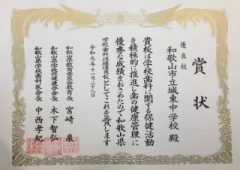 賞状
優良校
和歌山市立城東中学校 殿
貴校は学校歯科に関する保健活動
を積極的に推進し歯の健康管理に
優秀な成績をおさめたので和歌山県
学校歯科保健優良校としてこれを賞します
令和元年十一月二十八日
和歌山県教育委員会教育長 宮﨑 泉
和歌山県学校保健会会長 木下智弘
和歌山県学校歯科医会会長 中西孝紀